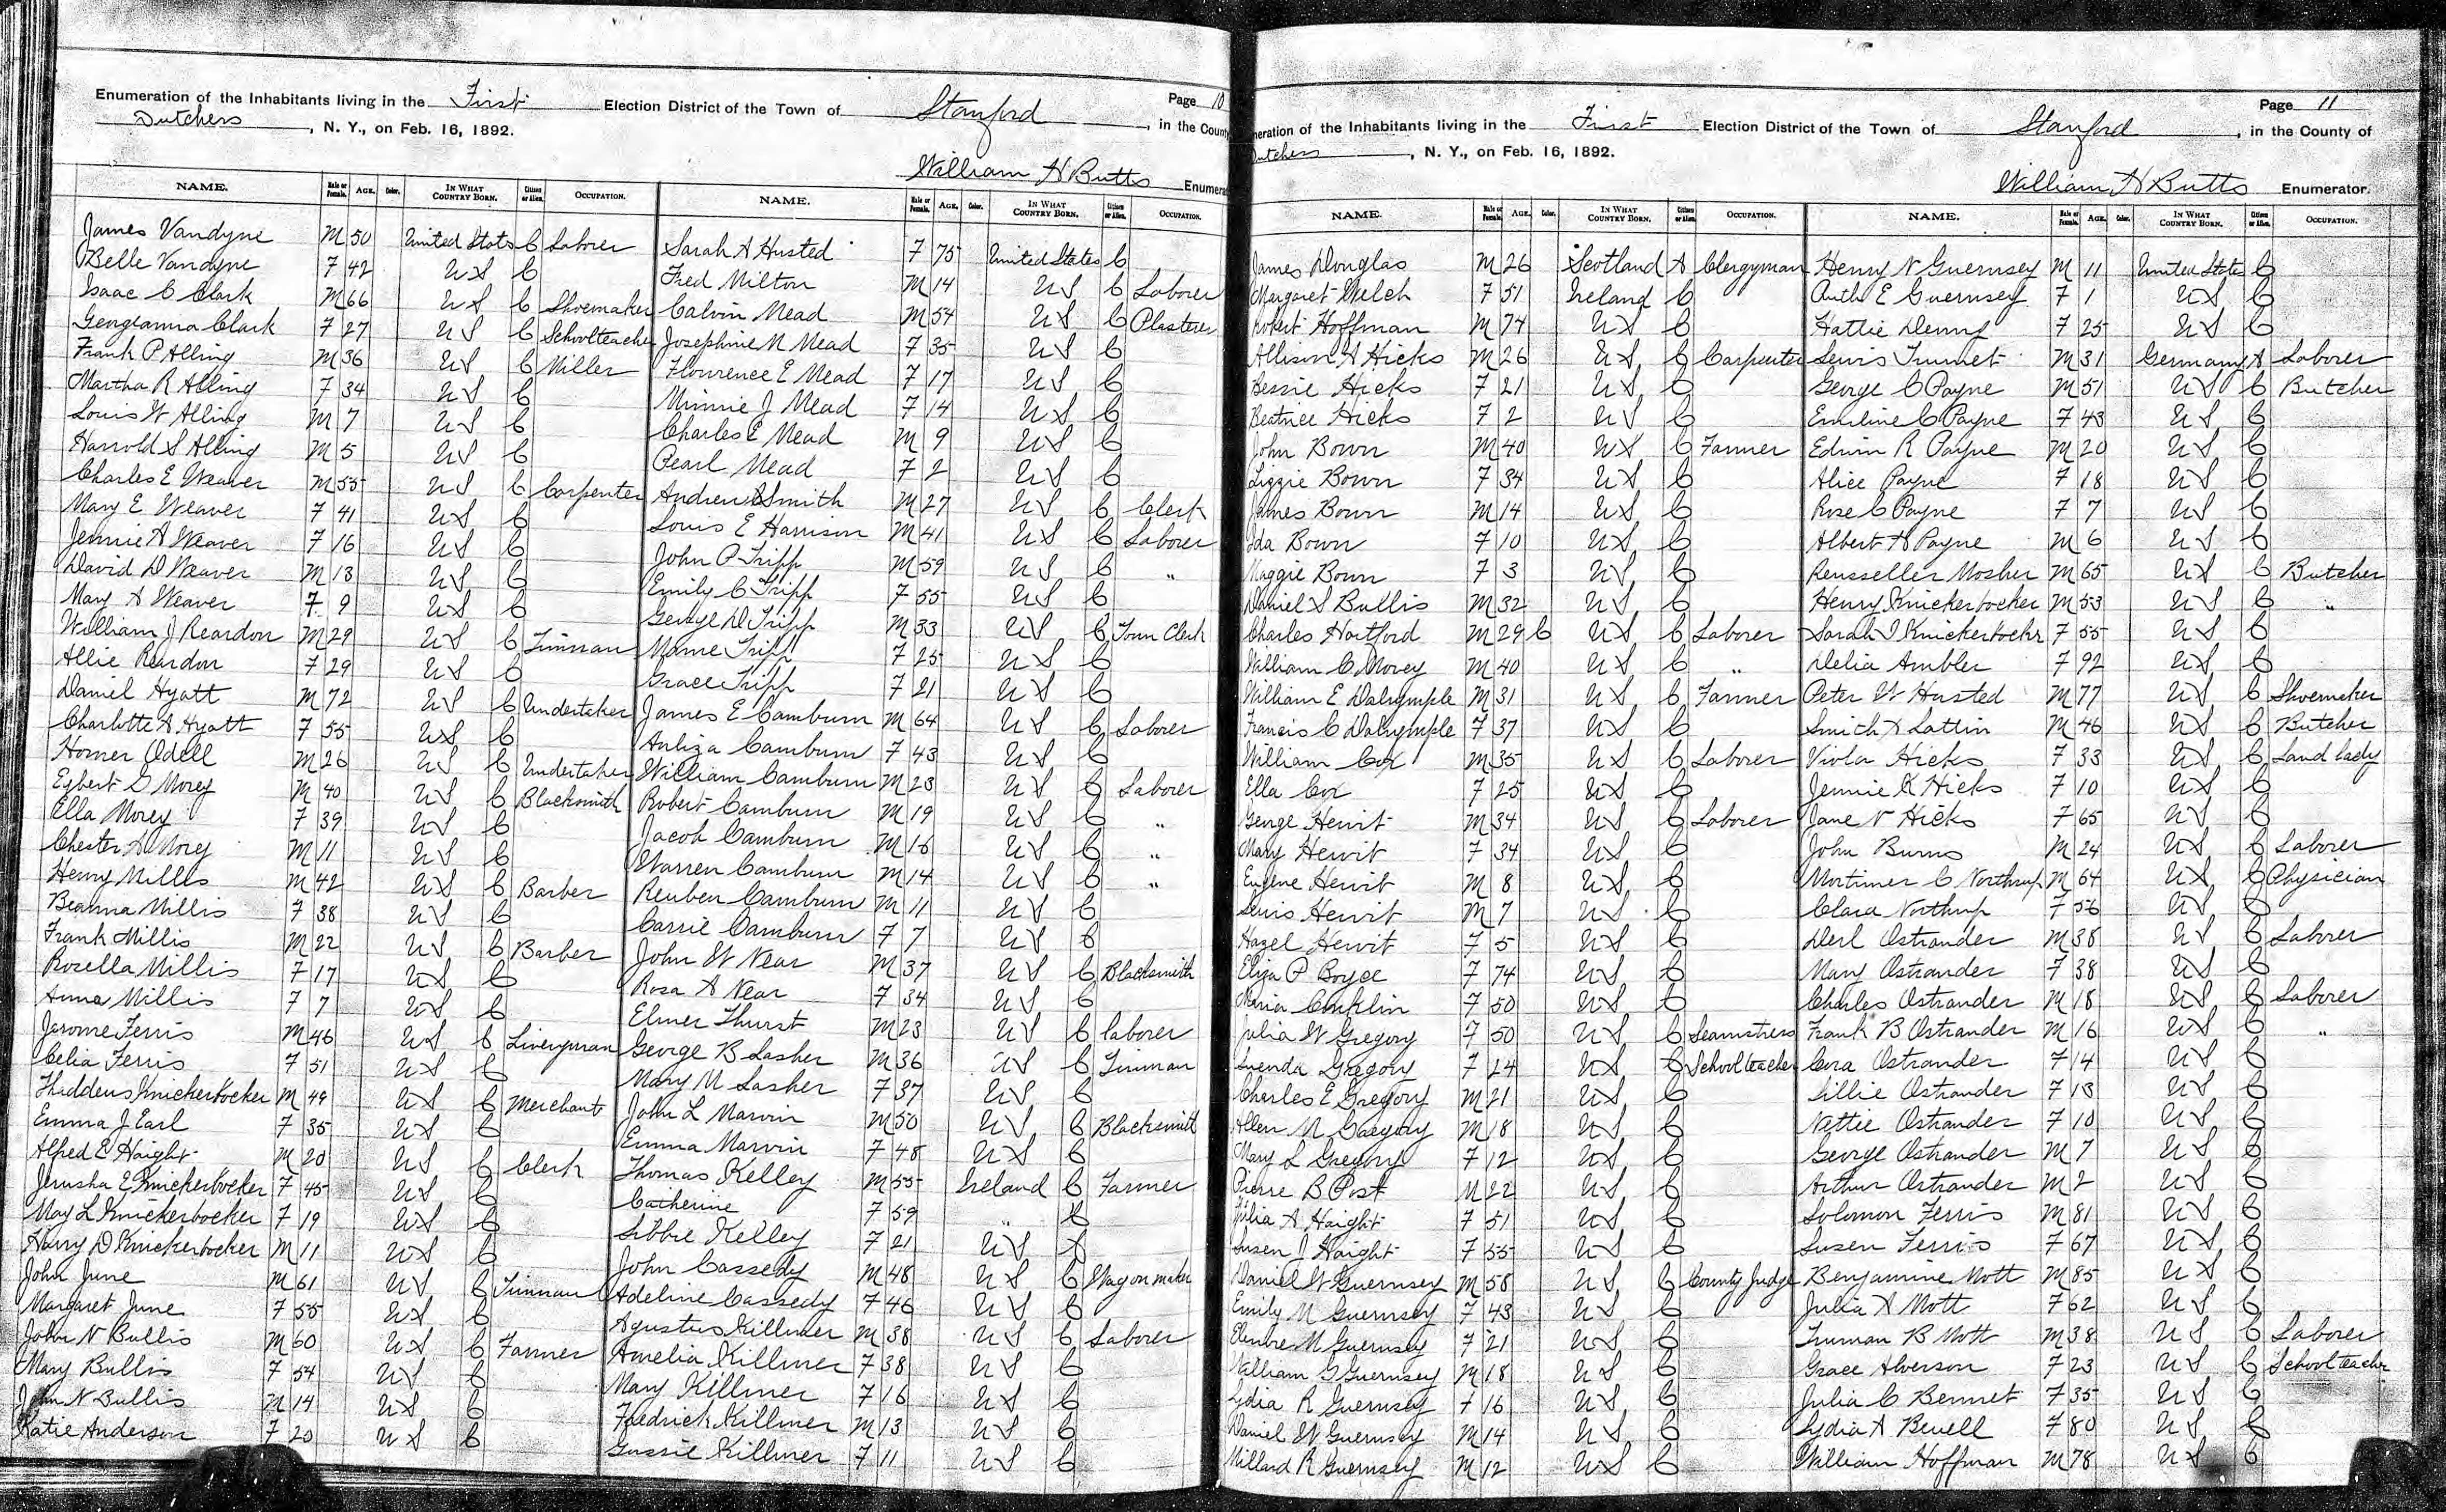 Page 10
Enumeration of the Inhabitants living in the First Election District of the Town of Stanford, in the County
Dutchess, N. Y., on Feb. 16, 1892.
William H Butts Enumera
NAME. Male or Female. AGE. Color. IN WHAT COUNTRY BORN. Citizen or Alien. OCCUPATION.
James Vandyne M 50 United Stats C Laborer
Belle Vandyne F 42 US C
Isaac C Clark M 66 US C Shoemaker
Georgianna Clark F 27 US C Schoolteacher
Frank P Alling M 36 US C Miller
Martha R Alling F 34 US C
Louis W Alling M 7 US C
Harrold S Alling M 5 US C
Charles E Weaver M 55 US C Carpenter
Mary E Weaver F 41 US C
Jennie A Weaver F 16 US C
David D Weaver M 13 US C
Mary A Weaver F 9 US C
William J Reardon M 29 US C Tinman
Allie Reardon F 29 US C
Daniel Hyatt M 72 US C Undertaker
Charlotte A Hyatt F 55 US C
Homer Odell M 26 US C Undertaker
Egbert G Morey M 40 US C Blacksmith
Ella Morey F 39 US C
Chester A Morey M 11 US C
Henry Millis M 42 US C Barber
Beanna Millis F 38 US C
Frank Millis M 22 US C Barber
Rosella Millis F 17 US C
Anna Millis F 7 US C
Jarome Ferris M 46 US C Liveryman
Celia Ferris F 51 US C
Thaddeus Knickerbocker M 49 US C Merchant
Emma J Earl F 35 US C
Alfred E Haight M 20 US C Clerk
Jerusha E Knickerbocker F 45 US C
May L Knickerbocker F 19 US C
Harry D Knickerbocker M 11 US C
John June M 61 US C Tinman
Margaret June F 55 US C
John N Bullis M 60 US C Farmer
Mary Bullis F 54 US C
John N Bullis M 14 US C
Katie Anderson F 20 US C
NAME. Male or Female. AGE. Color. IN WHAT COUNTRY BORN. Citizen or Alien. OCCUPATION.
Sarah A Husted F 75 United States C
Fred Milton M 14 US C Laborer
Calvin Mead M 54 US C Plasterer
Josephine N Mead F 35 US C
Flourence E Mead F 17 US C
Minnie J Mead F 14 US C
Charles E Mead M 9 US C
Pearl Mead F 2 US C
Andrew B Smith M 27 US C Clerk
Louis E Harrison M 41 US C Laborer
John P Tripp M 59 US C "
Emily C Tripp F 55 US C
George D Tripp M 33 US C Town Clerk
Mame Tripp F 25 US C
Grace Tripp F 21 US C
James E Camburn M 64 US C Laborer
Auliza Camburn F 43 US C
William Camburn M 23 US C Laborer
Robert Camburn M 19 US C "
Jacob Camburn M 16 US C "
Warren Camburn M 14 US C "
Reuben Camburn M 11 US C
Carrie Camburn F 7 US C
John W Near M 37 US C Blacksmith
Rosa A Near F 34 US C
Elmer Thurst M 23 US C laborer
George B Lasher M 36 US C Tinman
Mary M Lasher F 37 US C
John L Marvin M 50 US C Blacksmith
Emma Marvin F 48 US C
Thomas Kelley M 55 Ireland C Farmer
Catherine F 59 " C
Libbie Kelley F 21 US C
John Cassedy M 48 US C Wagon maker
Adeline Cassedy F 46 US C
Agustus Killmer M 38 US C Laborer
Amelia Killmer F 38 US C
Mary Killmer F 16 US C
Fredrick Killmer M 13 US C
Gussie Killmer F 11 US C
Page 11
neration of the Inhabitants living in the First Election District of the Town of Stanford, in the County of
utchess, N. Y., on Feb. 16, 1892.
William H Butts Enumerator.
NAME. Male or Female. AGE. Color. IN WHAT COUNTRY BORN. Citizen or Alien. OCCUPATION.
James Douglas M 26 Scotland A Clergyman
Margaret Welch F 51 Ireland C
Robert Hoffman M 74 US C
Allison A Hicks M 26 US C Carpenter
Bessie Hicks F 21 US C
Beatrice Hicks F 2 US C
John Bown M 40 US C Farmer
Lizzie Bown F 34 US C
James Bown M 14 US C
Ida Bown F 10 US C
Maggie Bown F 3 US C
Daniel S Bullis M 32 US C
Charles Hortford M 29 C US C Laborer
William C Morey M 40 US C "
William E Dalrymple M 31 US C Farmer
Francis C Dalrymple F 37 US C
William Cox M 35 US C Laborer
Ella Cox F 25 US C
George Hewit M 34 US C Laborer
Mary Hewit F 34 US C
Eugene Hewit M 8 US C
Lewis Hewit M 7 US C
Hazel Hewit F 5 US C
Eliza P Boyce F 74 US C
Maria Conklin F 50 US C
Julia W Gregory F 50 US C Seamstress
Luenda Gregory F 24 US C School teacher
Charles E Gregory M 21 US C
Allen M Gregory M 18 US C
Mary L Gregory F 12 US C
Pierre B Post M 22 US C
Julia A Haight F 51 US C
Susen J Haight F 55 US C
Daniel W Guernsey M 58 US C County Judge
Emily N Guernsey F 43 US C
Elenore M Guernsey F 21 US C
William G Guernsey M 18 US C
Lydia R Guernsey F 16 US C
Daniel W Guernsey M 14 US C
Millard R Guernsey M 12 US C
NAME. Male or Female. AGE. Color. IN WHAT COUNTRY BORN. Citizen or Alien. OCCUPATION.
Henry N Guernsey M 11 United States C
Ruth E Guernsey F 1 US C
Hattie Denny F 25 US C
Lewis M 31 Germany A Laborer
George C Payne M 51 US C Butcher
Emeline C Payne F 43 US C
Edwin R Payne M 20 US C
Alice Payne F 18 US C
Rose C Payne F 7 US C
Albert A Payne M 6 US C
Rensseller Mosher M 65 US C Butcher
Henry Knickerbocker M 53 US C "
Sarah J Knickerbocker F 55 US C
Delia Ambler F 92 US C
Peter W Husted M 77 US C Shoemaker
Smith A Lattin M 46 US C Butcher
Viola Hicks F 33 US C Land lady
Jennie K Hicks F 10 US C
Jane N Hicks F 65 US C
John Burns M 24 US C Laborer
Mortimer C Northrup M 64 US C Physician
Clara Northrup F 56 US C
Derl Ostrander M 38 US C Laborer
Mary Ostrander F 38 US C
Charles Ostrander M 18 US C Laborer
Frank B Ostrander M 16 US C "
Cora Ostrander F 14 US C
Lillie Ostrander F 13 US C
Nettie Ostrander F 10 US C
George Ostrander M 7 US C
Arthur Ostrander M 2 US C
Solomon Ferris M 81 US C
Susen Ferris F 67 US C
Benjamine Mott M 85 US C
Julia A Mott F 62 US C
Truman B Mott M 38 US C Laborer
Grace Alverson F 23 US C School teacher
Julia C Bennet F 35 US C
Lydia A Bewell F 80 US C
William Hoffman M 78 US C